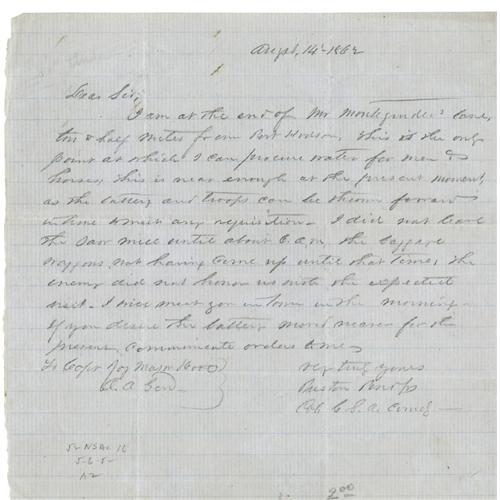 August, 14th 1862
Dear Sir,
I am at the end of Mr Montgudlers' lane
ten & half miles from Port Hudson, this is the only
point at which I can procure water for men &
horses, this is near enough at the present moment,
as the battery and troops can be thrown forward
in time to meet any requisition - I did not leave
the Saw mill until about 6. a.m, the baggage
waggons not having come up until that time, the
enemy did not honor us with the expected
visit - I will meet you in town in the morning -
If you desire the battery moved nearer for the
present communicate orders to me,
To Capt Jos
A. A. Genl -
very truly yours
Preston
Col C. S. A. Comdg -
5-6-5-
A2
2 00